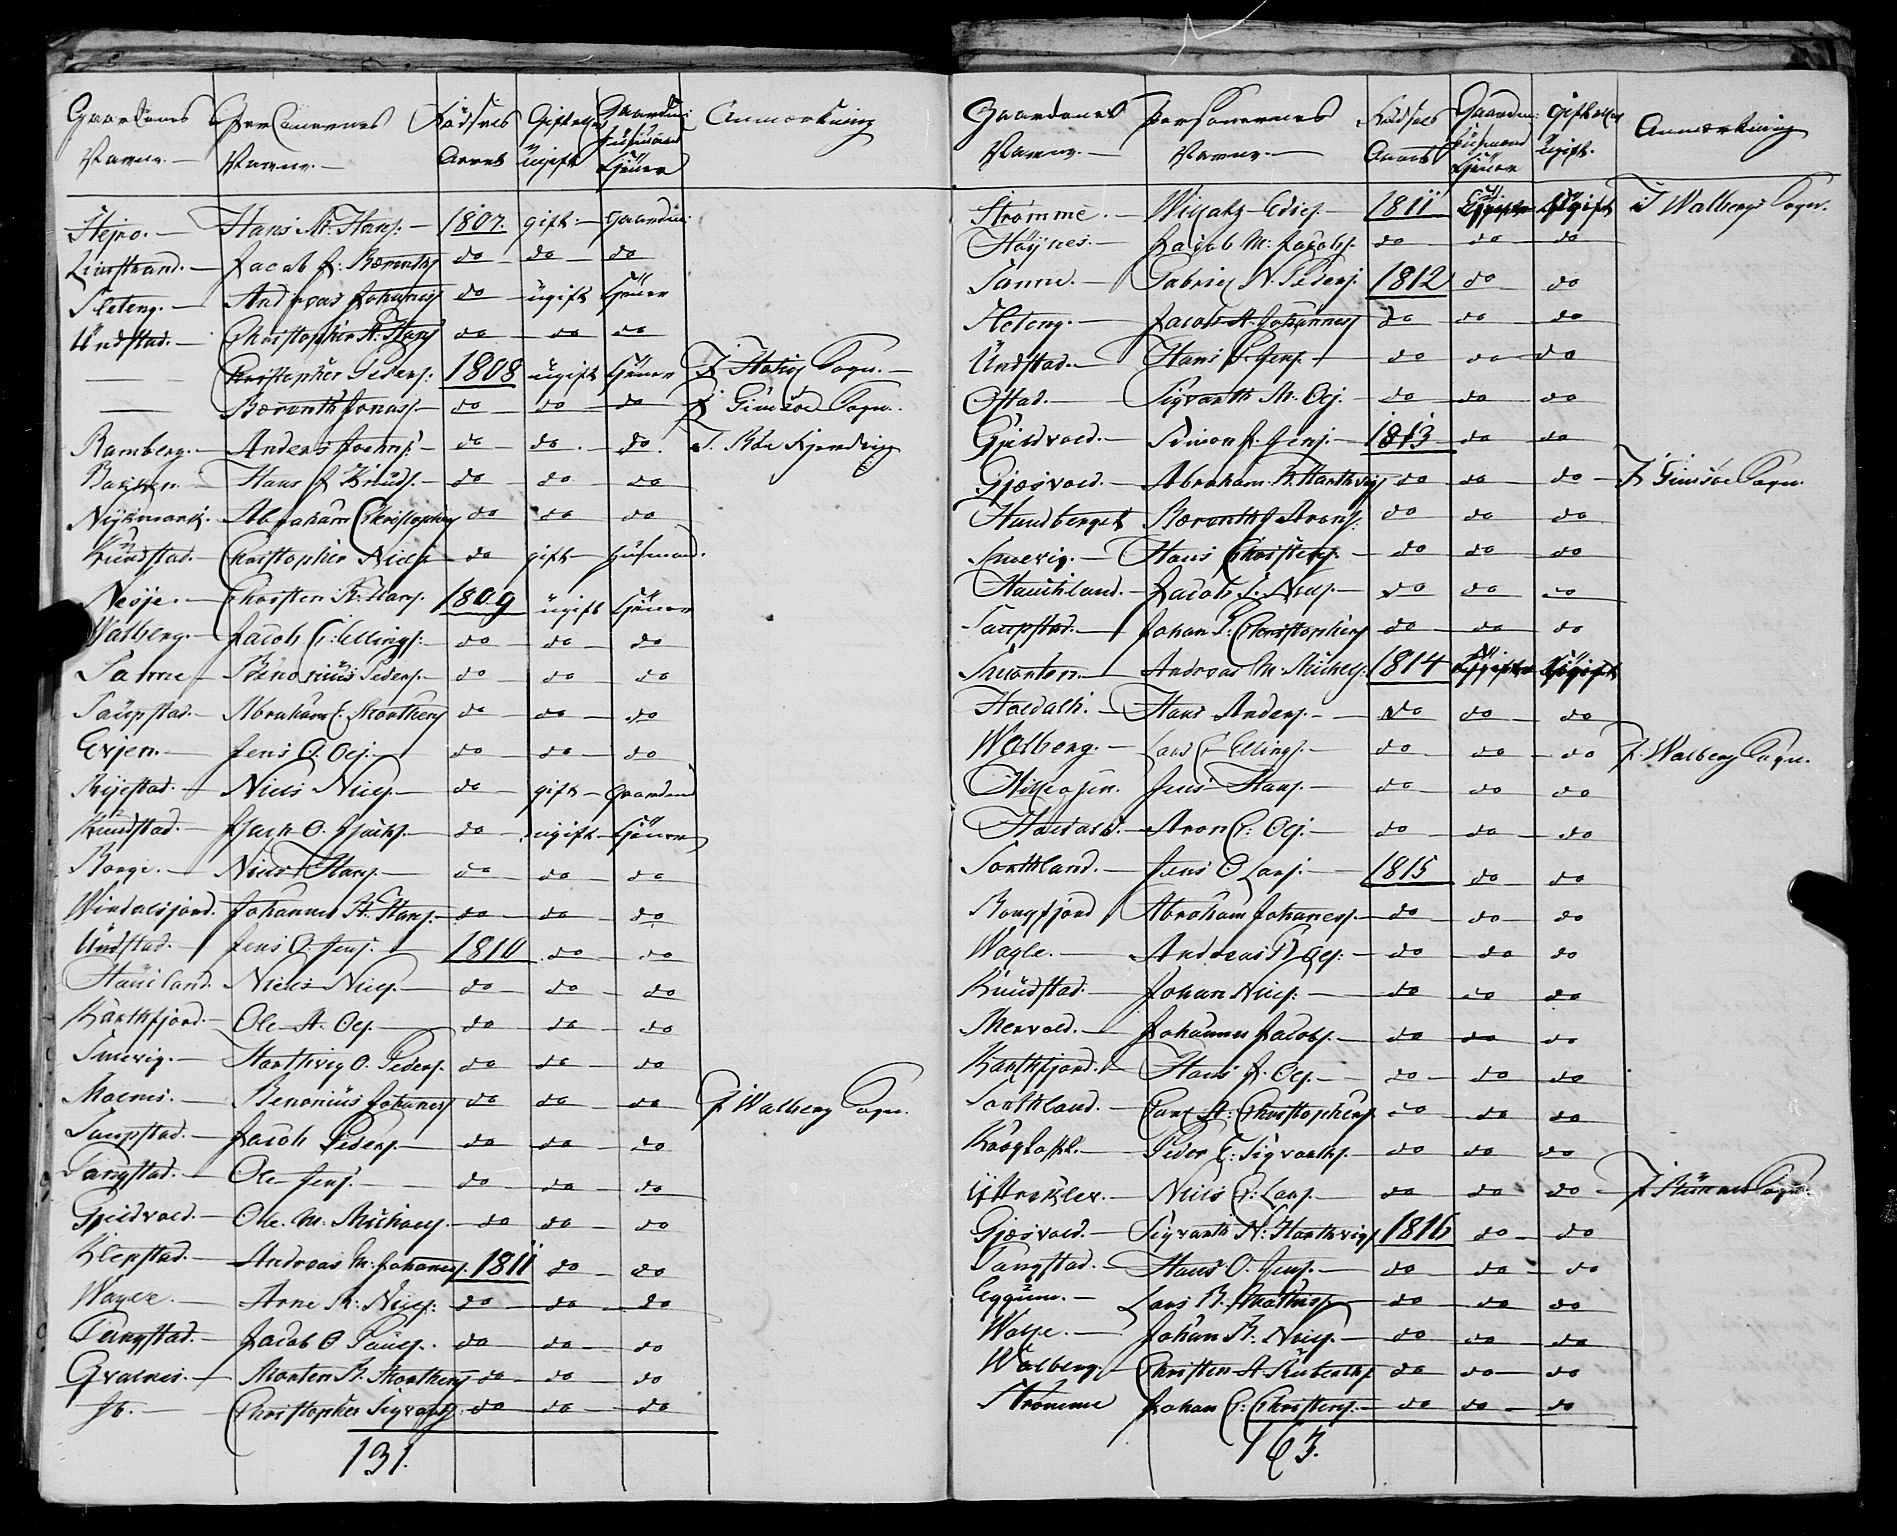 Gaardenes Navne. — Personernes Navne. — Födsels Aaret Gift eller Ugift Gaardm: Huusmand Tjener Anmærkning
Stejro. — Hans M. Hans. — 1807. gift — Gaardm:
Limstrand. — Jacob J. Berenths do do do
Sleteng. — Andreas Johannes do ugift Tjener
Undstad. — Christopher A. Hans do do do
— Christopher Peders: 1808 ugift Tjener J Sogn. —
— Berenth Jonas. — do do do J Gimsöe Sogn.
Ramberg. — Anders do do. do.
Hans J Knuds. — do do do
Nykmark. Abraham Christophers do do do
Kundstad. — Christopher Niels do gift — Husmand.
Nesje. — Christen R. Hans. 1809 ugift Tjener
Walberg. — Jacob C: Ellings: do do do
Sanne — Benonius Peders. do do do
Saupstad. — Abraham E. Morthens do do do
Evjen. — Jens O. Oes. — do do do
Ryestad. — Niels Niels. — do gift — Gaardm
Kundstad. — Isach O. Isachs. — do ugift — Tjener
Borge. — Niels Hans. — do do do
Windalsfjord. Johannes A. Hans. — do do do
Undstad. — Jens O. Jens. — 1810 do do
Haueland. Niels Niels. — do do do
Karthfjord. — Ole A. Oes. — do do do
Smevig. — Harthvig O. Peders. do do do
Moenes. — Benonius Johannes do do do J Walberg Sogn.
Saupstad. — Jacob Peders. — do do do
Tangstad. — Ole Jens. — do do do
Gjeldvold. — Ole M. Michaels. — do do do
Klepstad. — Andreas M. Johannes. 1811 do do
Arne R. Niels: do do do
Tangstad. — Jacob O Pauls. — do do do
Qvalnes. — Morten B. Morthens do do do
Christopher Sigvarths: do do do
131.
Gaardenes Navne. — Personernes Navne. — Födsels Aaret Gaardm: Huusmand Tjener Gift eller Ugift. Anmærkning
Strömme. — 1811 Tjener Ugift i Walbergs Sogn.
Höynes. — Jacob M: Jacobs. do do do
Sanne. — Gabriel N. Peders. 1812 do do
Sleteng. — Jacob A. Johannes do do do
Undstad. — Hans P. Jens. — do do do
Ostad. — Sigvarth M. Oes. — do do do
Gjeldvold. — Simon J. Jens. — 1813 do do
Gjæsvold. — Abraham R. Harthvigs do do do — J Gimsöe Sogn.
Sandberget Berenth J Arons. do do do
Smevig. — Hans Christens. — do do do
Haueland. — Jacob P. Niels. — do do do
Saupstad. — Johan P. Christophers do do do
Smorten. — Andreas M. Michaels. 1814 Tjener Ugift
Holdalh. — Hans Anders. — do do do
Walberg. — Lars C Ellings. — do do do J. Walberg Sogn.
Jens Hans. — do do do
Holdalh. — Aron C: Oes. — do do do
Sorthland. — Jens O Lars. — 1815 do do
Borgfjord Abraham Johannes. — do do do
Wagle. — Andreas P. Oes. — do do do
Knudstad. — Johan Niels: — do do do
Mervold. — Johannes Jacobs. — do do do
Karthfjord. — Hans J. Oes. — do do do
Sorthland. — Carl A: Christophers. do do do
Peder C: Sigvarths. — do do do
Niels C: Lars. — do do do — J Sogn
Gjæsvold. — Sigvarth N: Harthvigs 1816 do do
Tangstad. — Hans O. Jens. — do do do
Eggum. — Lars B. Mathias. — do do do
Wolje. — Johan B. Niels. — do do do
Walberg. — Christen A Ruberths. do do do
Strömme Johan C: Christens. — do do do
163.